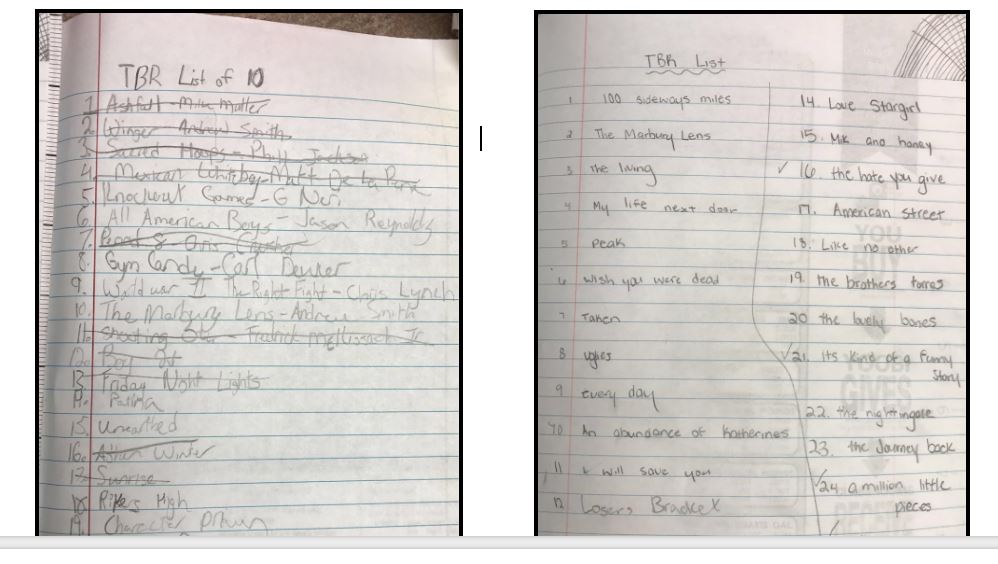 TBR List of 10
1. Ashfall - Mike Muller
2. Winger Andrew Smith
3. Sacred Hoops - Phill Jackson
4. Mexican Whiteboy - Matt De La Pena
5. Knockout Games - G Neri
6. All American Boys - Jason Reynolds
7. - Cris Crusher
8. Gym Candy - Carl Deuker
9. World war II The Right Fight - Chris Lynch
10. The Marbury Lens - Andrew Smith
11. Shooting Star - Fredrick McKissack Jr
12. Boy
13. Friday Night Lights
14. Patina
15. Unearthed
16. Ashen Winter
17. Sunrise
18. Rikers High
19. Character Driven
TBR List
1 100 sideways miles
2 The Marbury Lens
3 the living
4 My life next door
5 Peak
6 wish you were dead
7 Taken
8 uglies
9 every day
10 An abundance of Katherines
11 I will save you
12 Losers Bracket
14. Love Stargirl
15. Milk and honey
✓ 16 the hate you give
17. American street
18. Like no other
19. the brothers torres
20 the lovely bones
✓ 21. its kind of a funny
story
22. the nightingale
23. the Journey back
✓ 24 a million little
pieces